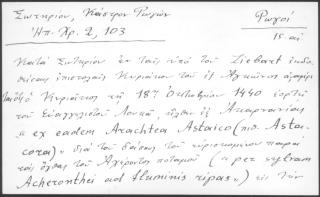 Σωτηρίου, Κάστρον Ρωγῶν
Ρωγοί
Ἠπ. Χρ. 2, 103
15 αἰ
Κατὰ Σωτηρίου ἐν ταῖς ὑπὸ τοῦ Ziebart ἐκδο
θείσαις ἐπιστολαῖς Κυριακοῦ τοῦ ἐξ Ἀγκῶνος ἀναφέρ
Κυριακὸς τῇ 18ῃ Ὀκτωβρίου 1440 ἑορτῇ
τοῦ Εὐαγγελιστοῦ Λουκᾶ, ἦλθεν ἐξ Ἀκαρνανίας
« ex eadem Arachtea Astaico (πιθ. Asta
cora) » διὰ τοῦ δάσους τοῦ εὑρισκομένου παρὰ
τὰς ὄχθας τοῦ Ἀχέροντος ποταμοῦ (« per sylvam
Acheronthei ad fluminis ripas ») εἰς τὴν